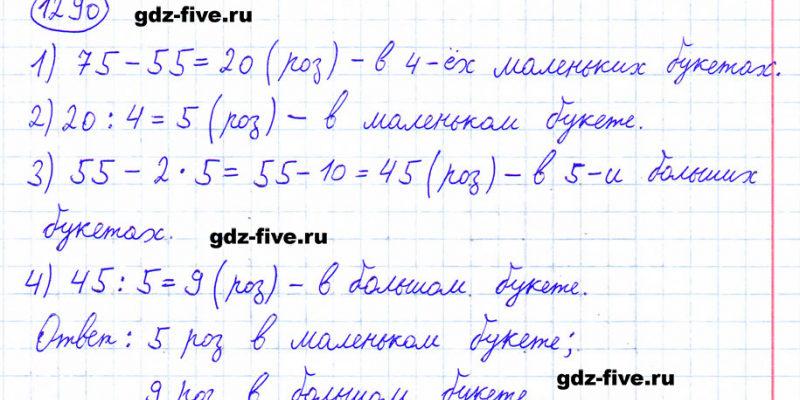 1290 gdz-five.ru
1) 75 - 55 = 20 (роз) - в 4-ёх маленьких букетах.
2) 20 : 4 = 5 (роз) - в маленьком букете.
3) 55 - 2 · 5 = 55 - 10 = 45 (роз) - в 5-и больших
букетах. gdz-five.ru
4) 45 : 5 = 9 (роз) - в большом букете.
Ответ: 5 роз в маленьком букете;
9 роз в большом букете gdz-five.ru